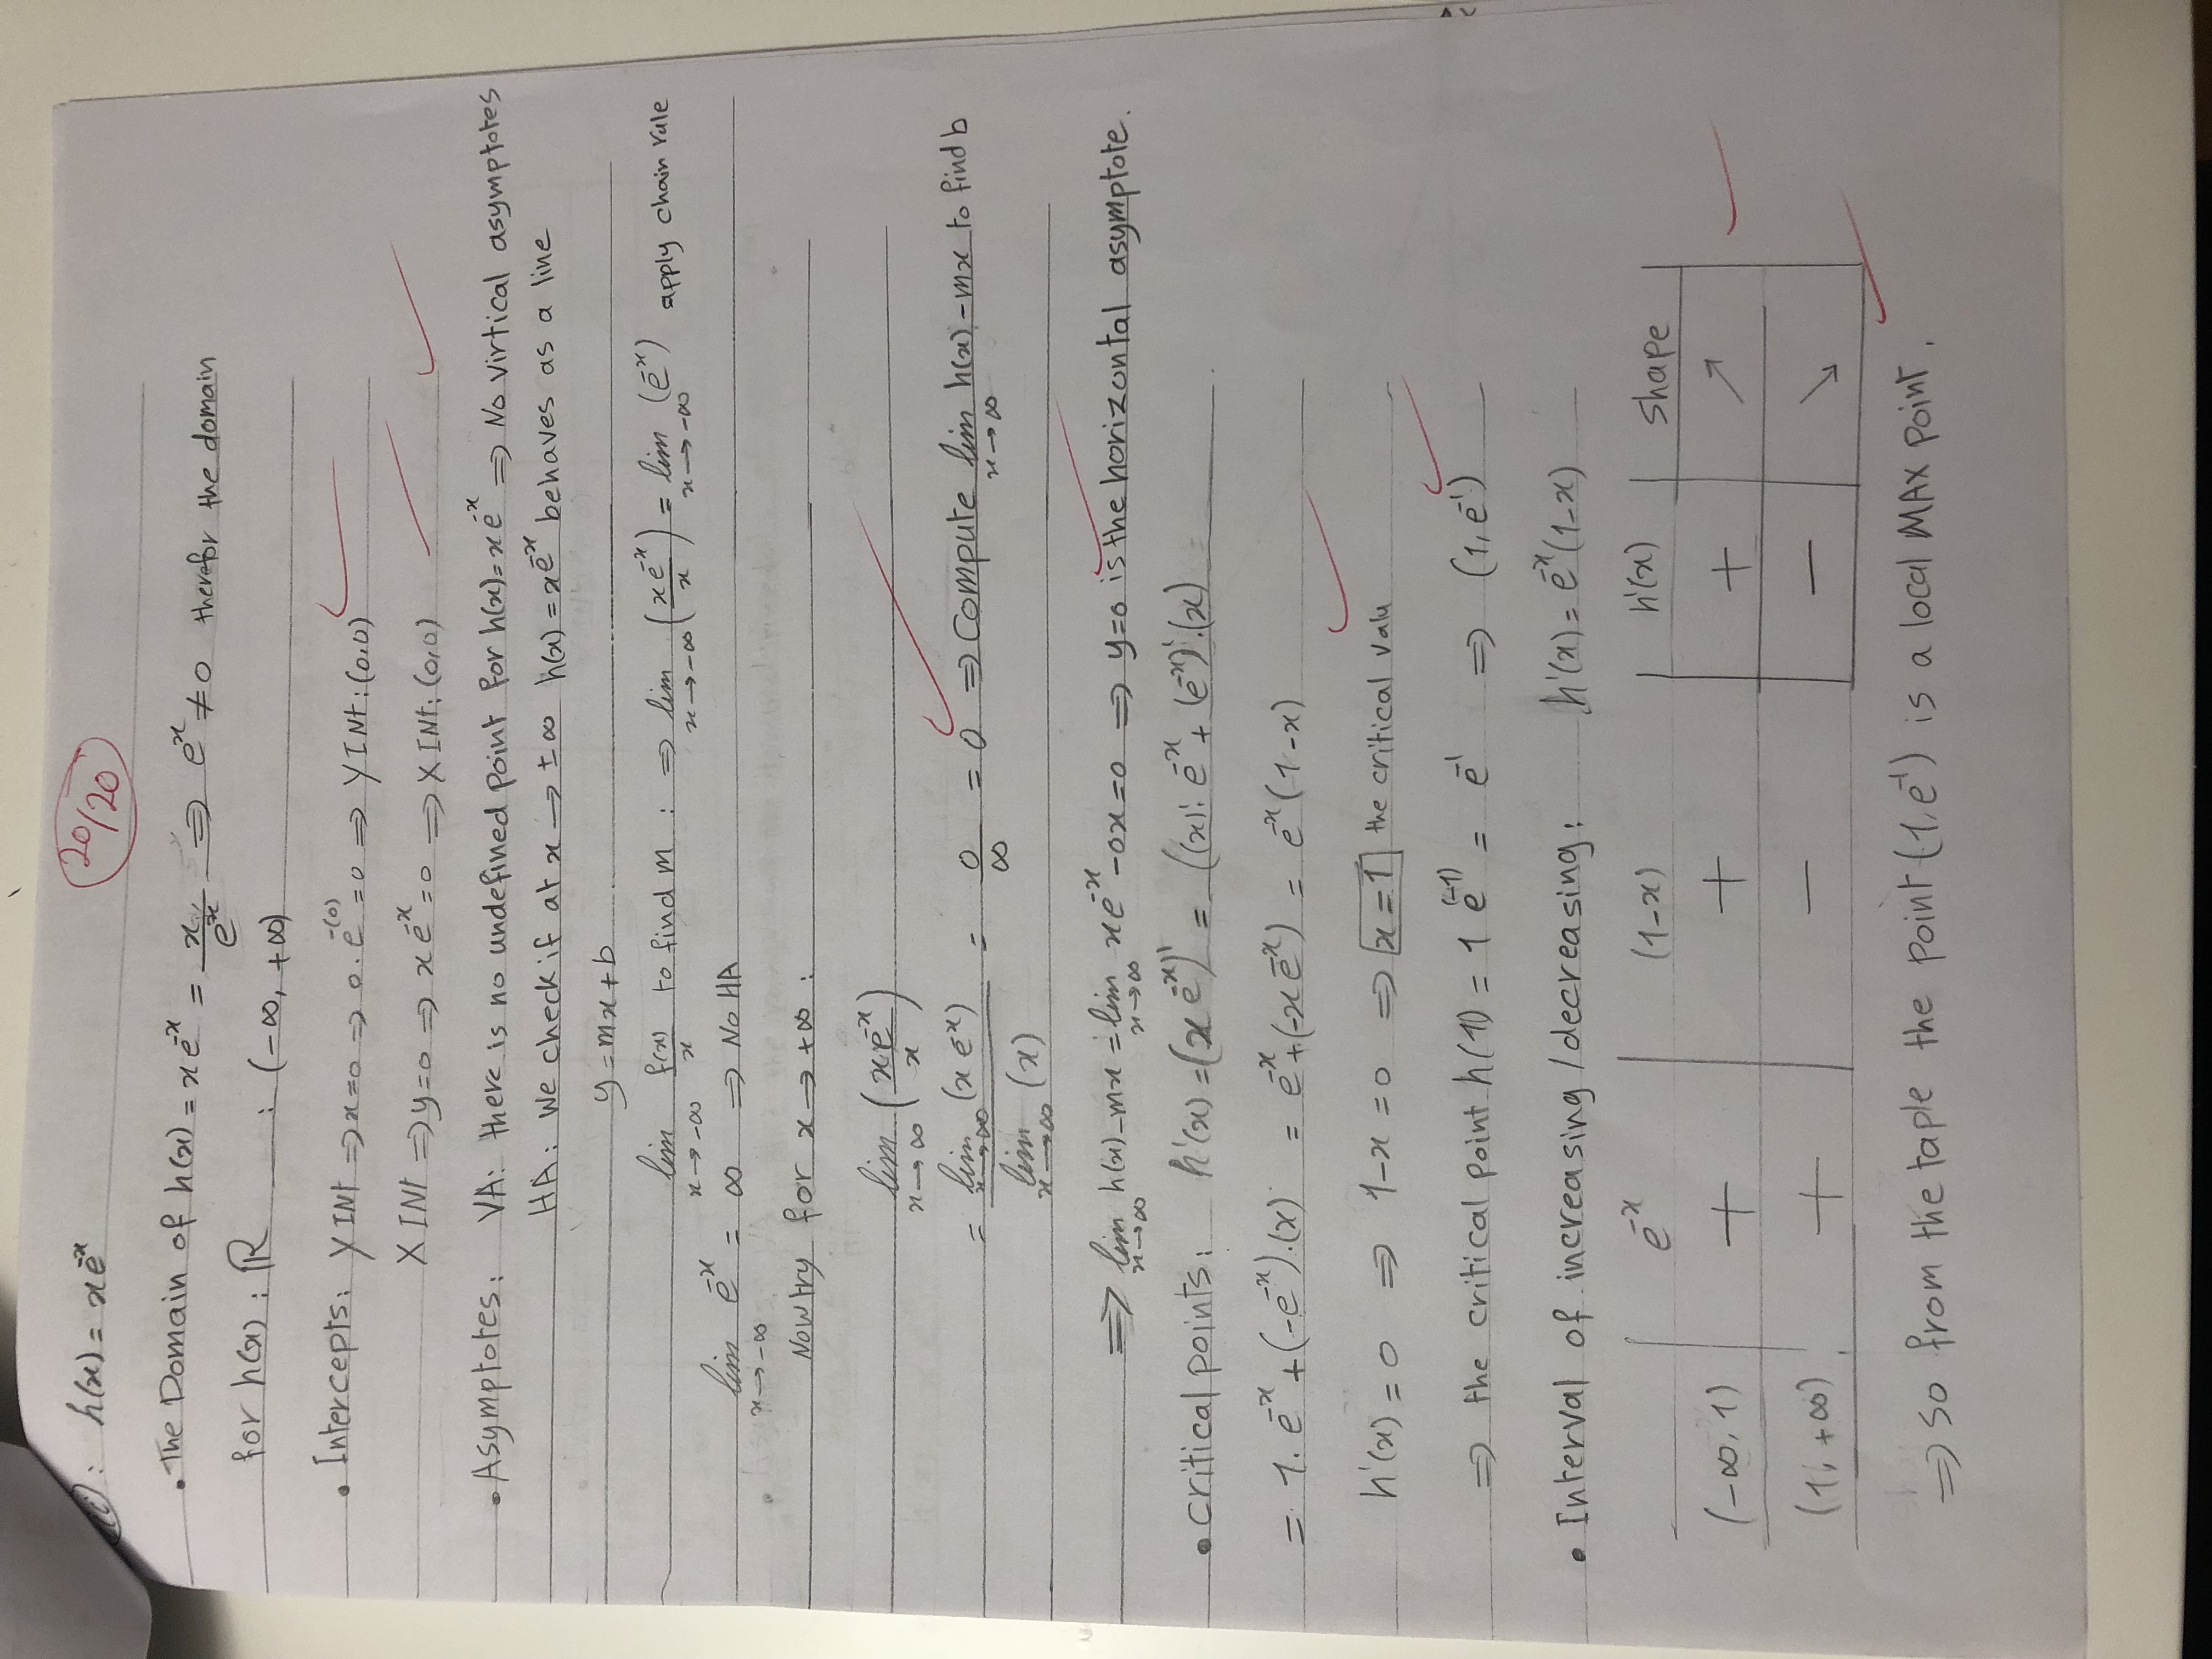 20/20
(i): h(x) = xe^-x
• The Domain of h(x) = xe^-x = x/e^x ⟹ e^x ≠ 0 therefor the domain
for h(x): ℝ : (-∞, +∞)
• Intercepts: Y INt ⇒ x=0 ⇒ 0.e^-(0) = 0 ⇒ Y INt: (0,0)
X INt ⇒ y=0 ⇒ xe^-x = 0 ⇒ X INt: (0,0)
• Asymptotes: VA: there is no undefined point for h(x) = xe^-x ⇒ No virtical asymptotes
HA: we check if at x → ±∞ h(x) = xe^-x behaves as a line
y = mx + b
lim x→-∞ f(x)/x to find m : ⇒ lim x→-∞ (xe^-x/x) = lim x→-∞ (e^-x) apply chain rule
lim x→-∞ e^-x = ∞ ⇒ No HA
Now try for x → +∞ :
lim x→∞ (xe^-x/x)
= lim x→∞ (xe^-x) / lim x→∞ (x) = 0/∞ = 0 ⇒ Compute lim x→∞ h(x) - mx to find b
⟹ lim x→∞ h(x) - mx = lim x→∞ xe^-x - 0x = 0 ⇒ y=0 is the horizontal asymptote.
• Critical points: h'(x) = (xe^-x)' = ((x)'. e^-x + (e^-x)'.(x)) =
= 1. e^-x + (-e^-x).(x) = e^-x + (-xe^-x) = e^-x (1-x)
h'(x) = 0 ⇒ 1-x = 0 ⇒ x = 1 the critical valu
⇒ the critical point h(1) = 1 e^(-1) = e^-1 ⇒ (1, e^-1)
• Interval of increasing/decreasing: h'(x) = e^-x (1-x)
e^-x (1-x) h'(x) Shape
(-∞, 1) + + + ↗
(1, +∞) + - - ↘
⇒ So from the taple the point (1, e^-1) is a local MAX point.